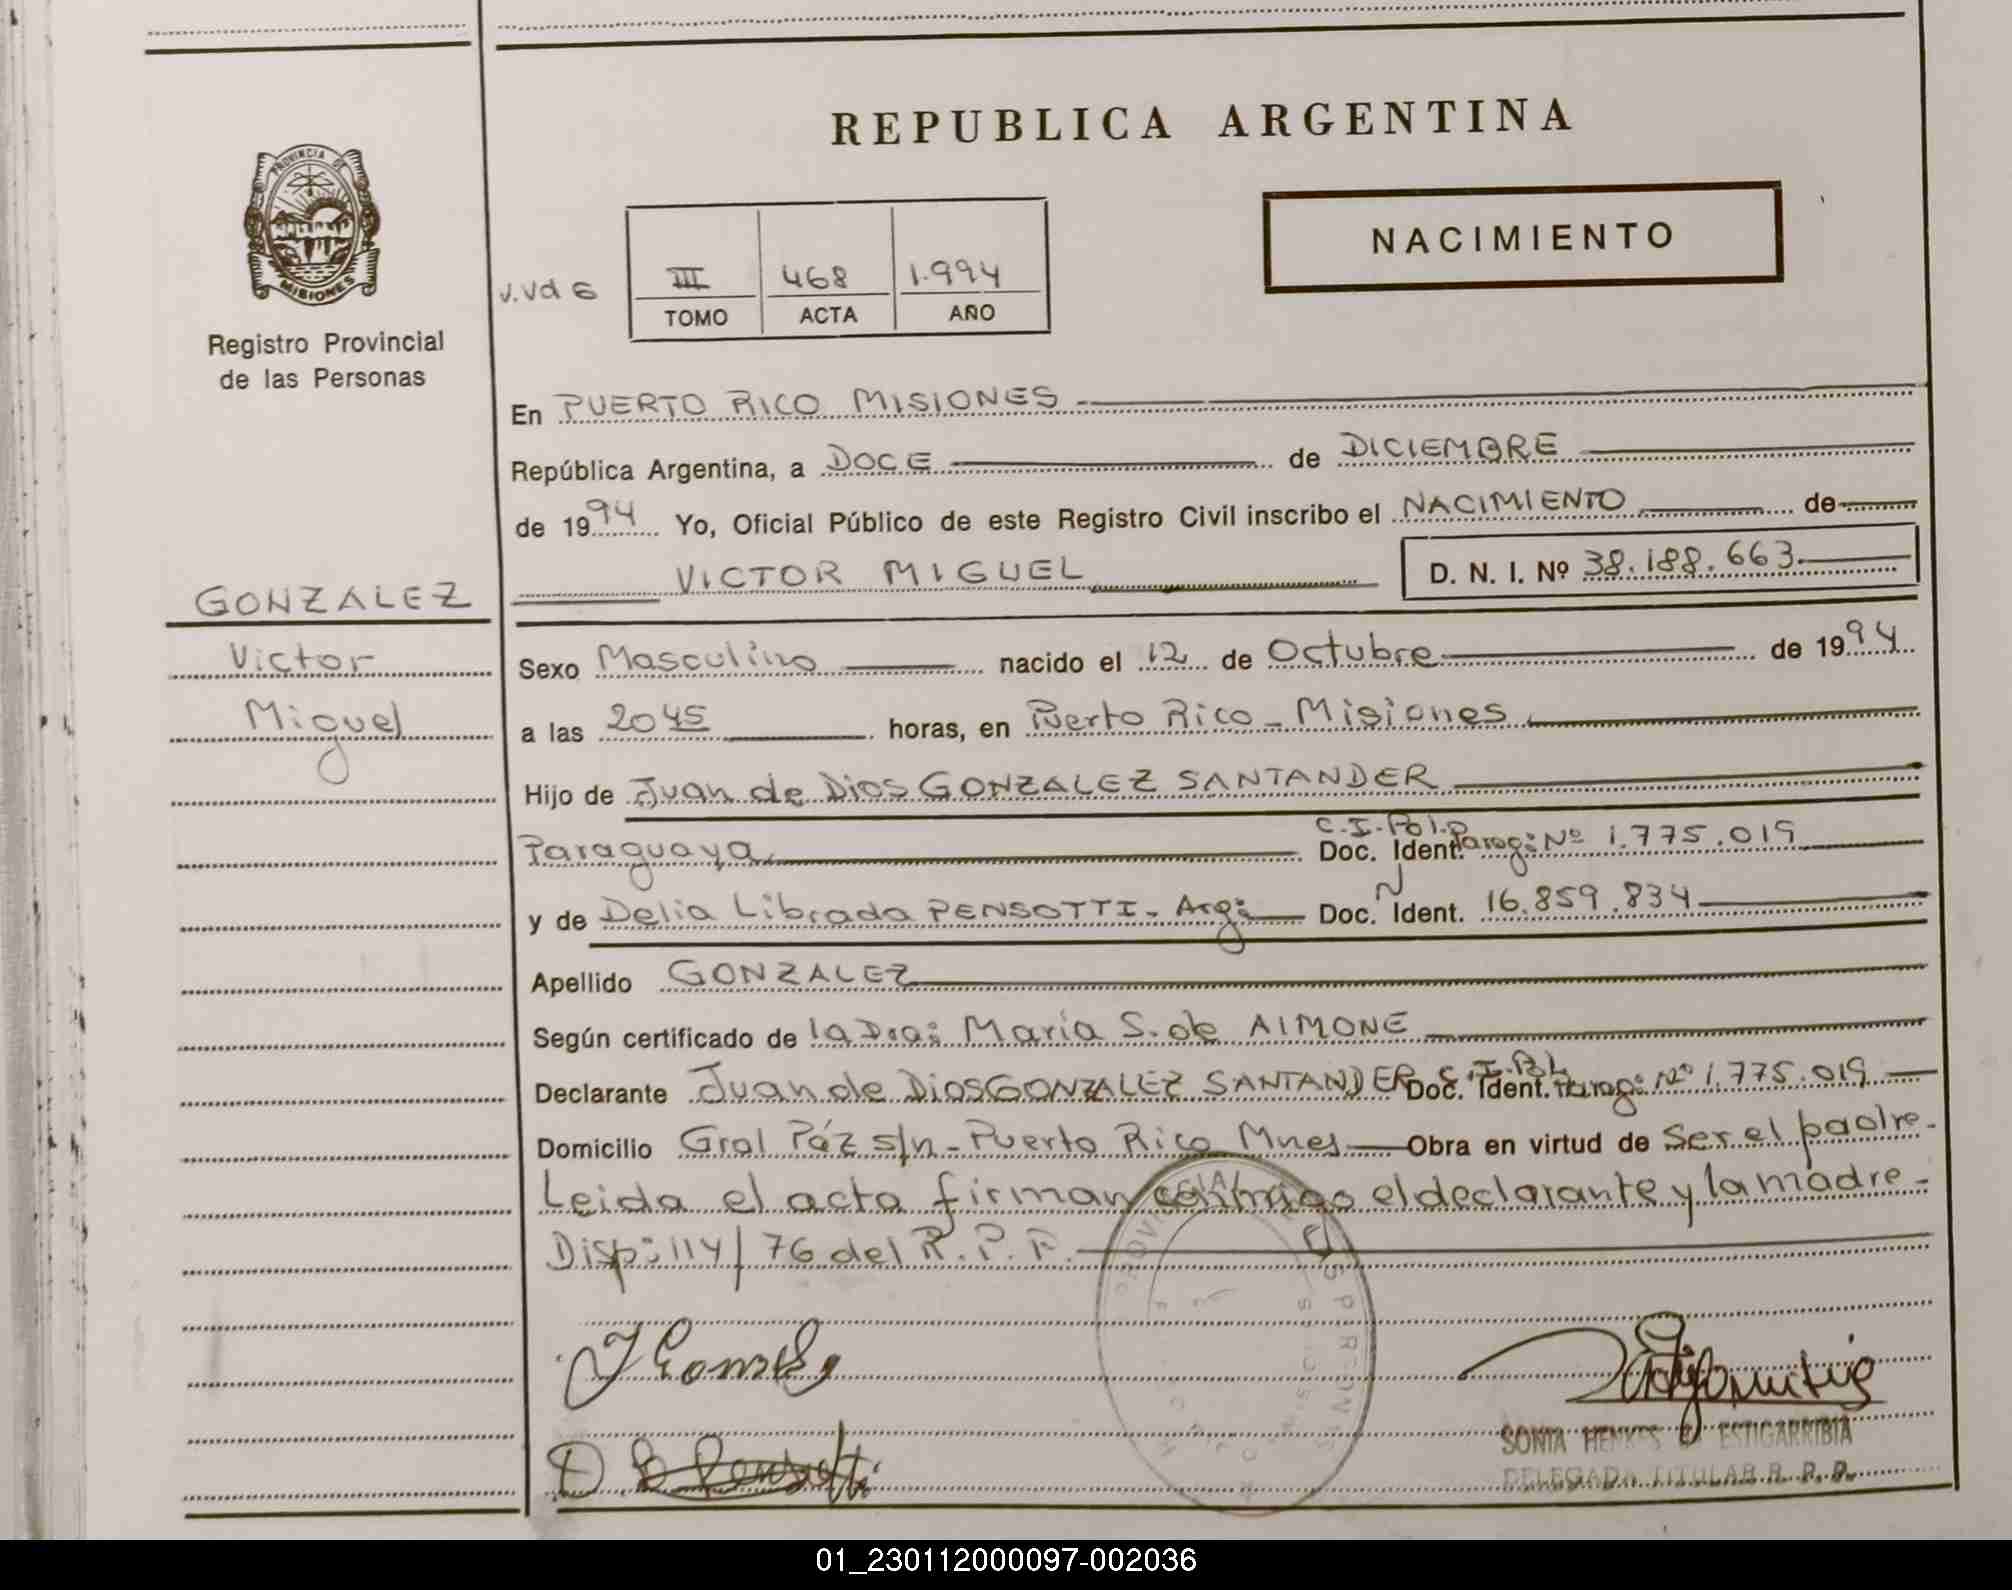 REPUBLICA ARGENTINA
PROVINCIA DE
MISIONES
Registro Provincial
de las Personas
NACIMIENTO
v.vd 6
III 468 1.994
TOMO ACTA AÑO
En PUERTO RICO MISIONES
República Argentina, a DOCE de DICIEMBRE
de 1994 Yo, Oficial Público de este Registro Civil inscribo el NACIMIENTO de
VICTOR MIGUEL D. N. I. Nº 38.188.663
GONZALEZ
Victor
Miguel
Sexo Masculino nacido el 12 de Octubre de 1994
a las 2045 horas, en Puerto Rico - Misiones
Hijo de Juan de Dios GONZALEZ SANTANDER
Paraguaya Doc. Ident. C.I.Pol.Parag: Nº 1.775.019
y de Delia Librada PENSOTTI - Arg: Doc. Ident. 16.859.834
Apellido GONZALEZ
Según certificado de la Dra: María S. de AIMONE
Declarante Juan de Dios GONZALEZ SANTANDER Doc. Ident. C.I.Pol. Parag: Nº 1.775.019
Domicilio Gral Páz s/n - Puerto Rico Mnes Obra en virtud de Ser el padre -
Leida el acta firman conmigo el declarante y la madre -
Disp: 114/76 del R. P. P.
SONIA HENKES DE ESTIGARRIBIA
DELEGADA TITULAR R. P. P.
01_230112000097-002036